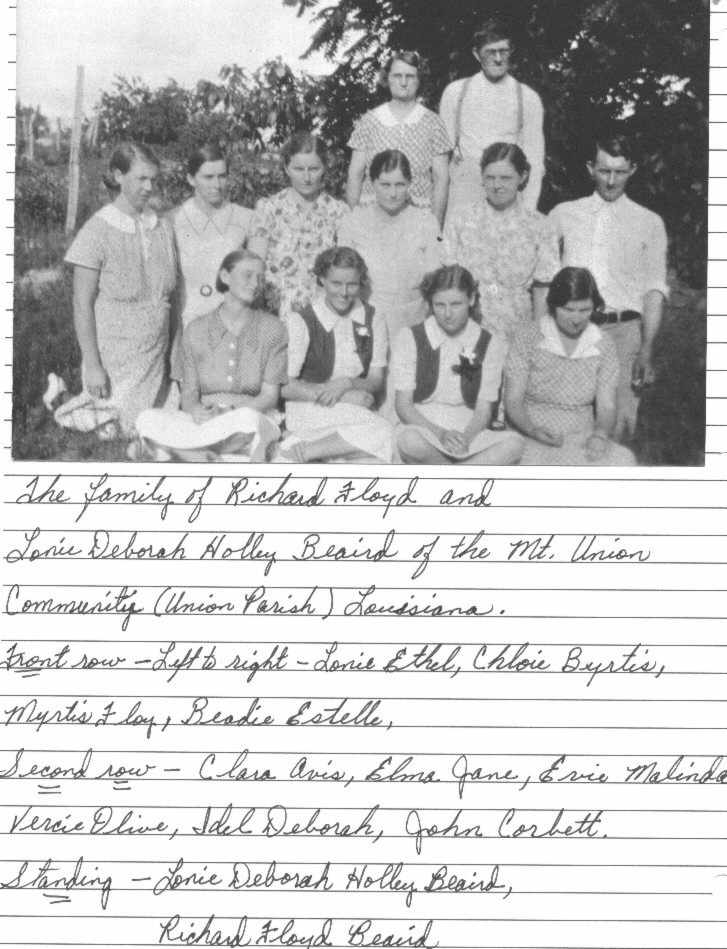 The family of Richard Floyd and
Lonie Deborah Holley Beaird of the Mt. Union
Community (Union Parish) Louisiana.
Front row - Left to right - Lonie Ethel, Chloie Byrtis,
Myrtis Floy, Beadie Estelle,
Second row - Clara Avis, Elma Jane, Evie Malinda
Vercie Olive, Idel Deborah, John Corbett.
Standing - Lonie Deborah Holley Beaird,
Richard Floyd Beaird